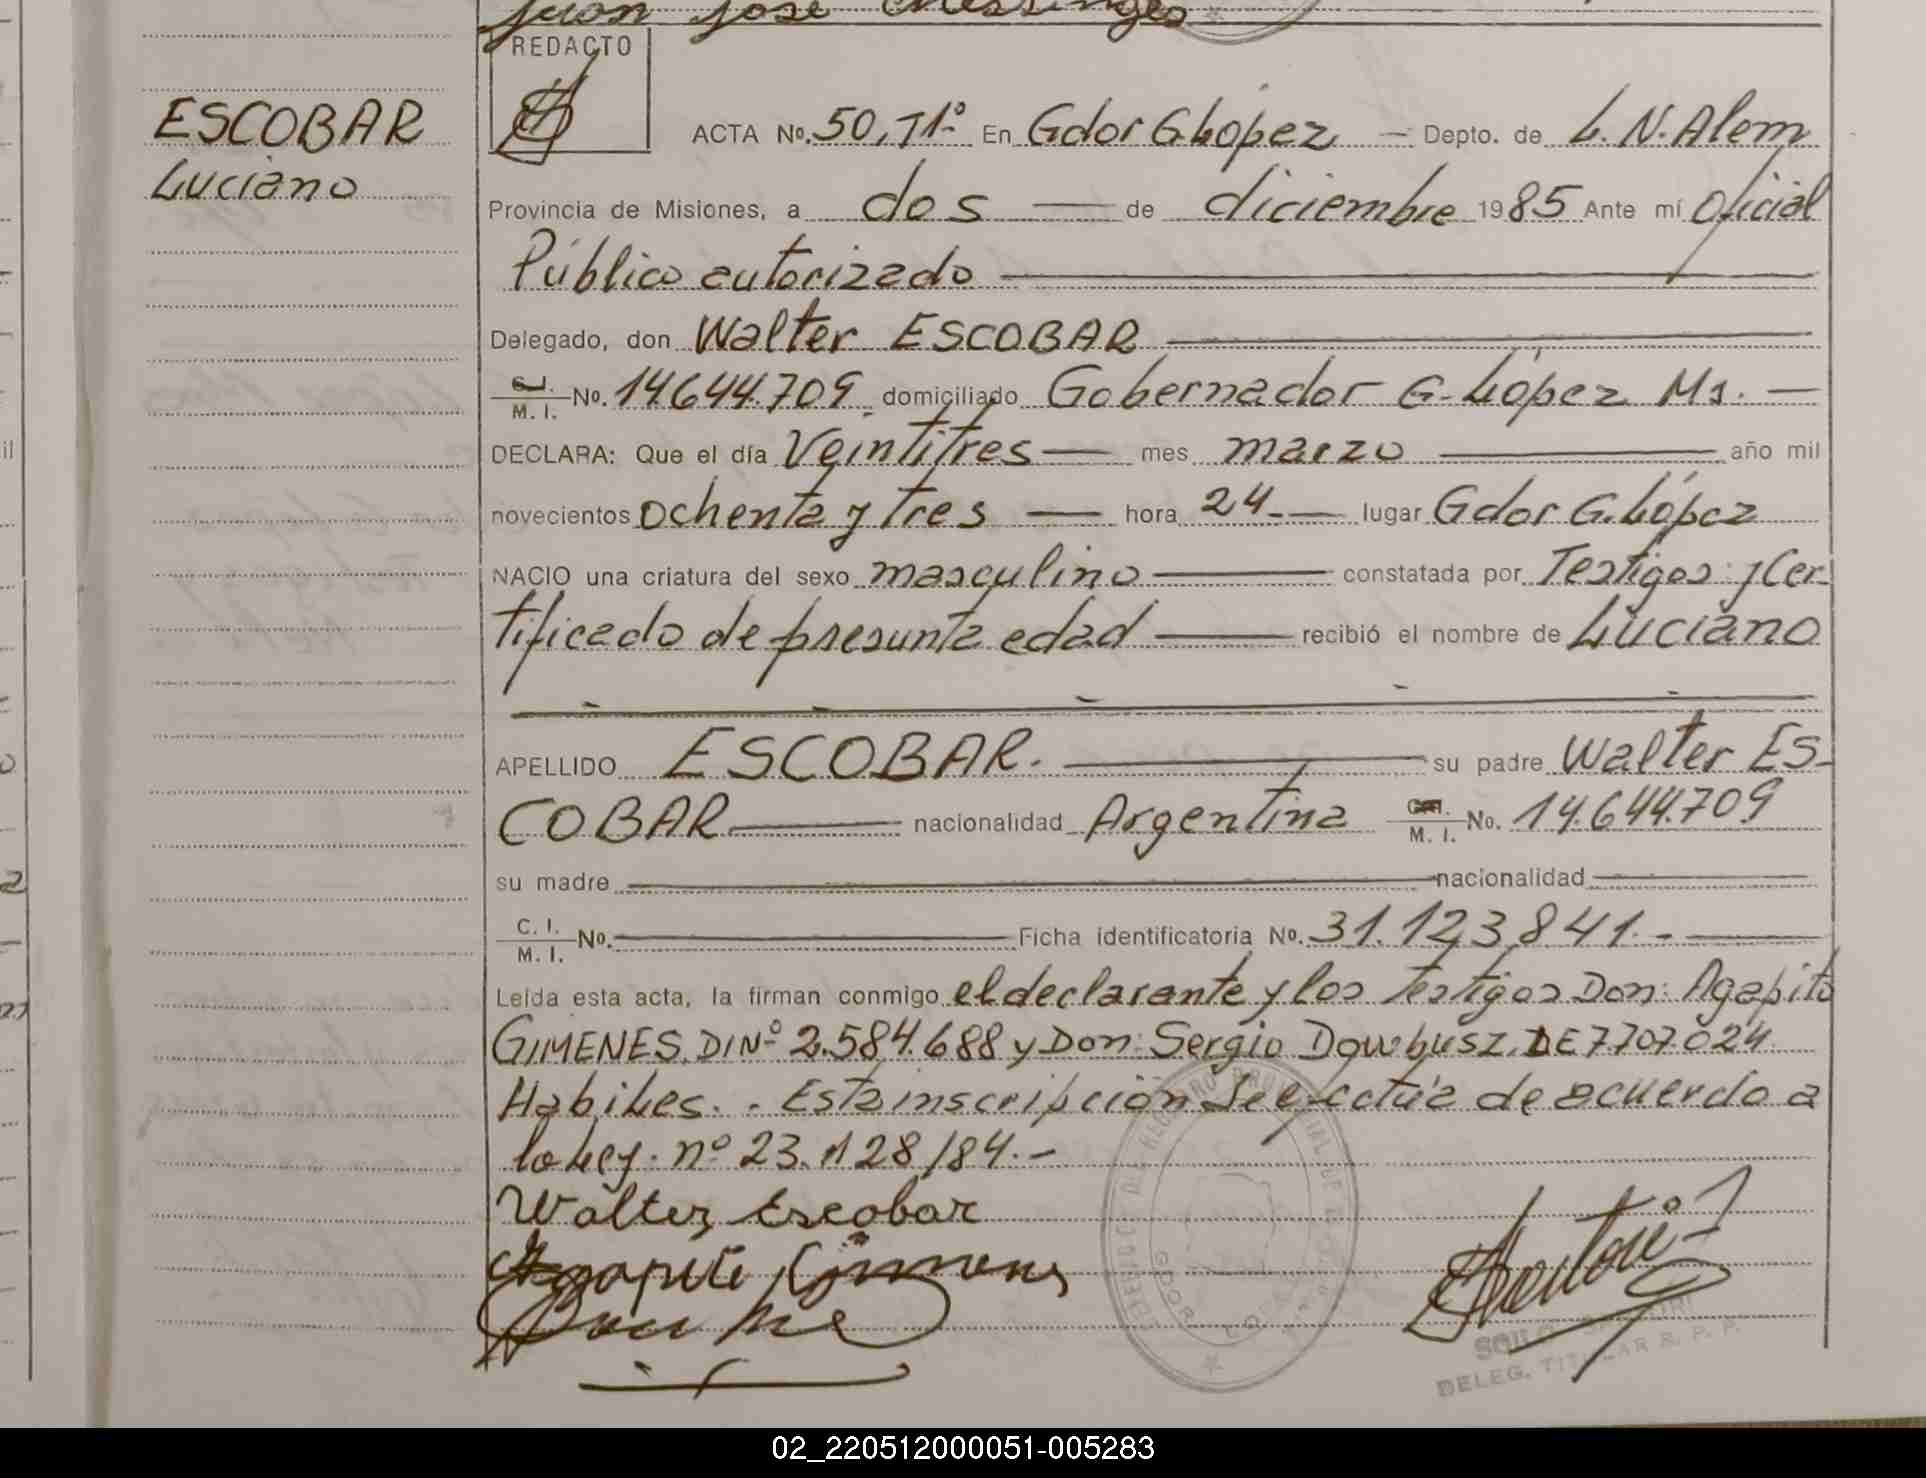 Juan José
REDACTO
ESCOBAR
Luciano
ACTA No. 50, T1º En Gdor G. López — Depto. de L. N. Alem
Provincia de Misiones, a dos — de diciembre 1985 Ante mí Oficial
Público autorizado
Delegado, don Walter ESCOBAR
C. I. / M. I. No. 14.644.709 domiciliado Gobernador G. López Ms. —
DECLARA: Que el día Veintitres — mes marzo — año mil
novecientos ochenta y tres — hora 24.- — lugar Gdor G. López
NACIO una criatura del sexo masculino — constatada por Testigos y Cer-
tificado de presunta edad — recibió el nombre de Luciano
APELLIDO ESCOBAR. — su padre Walter ES-
COBAR — nacionalidad Argentina C. I. / M. I. No. 14.644.709
su madre — nacionalidad —
C. I. / M. I. No. — Ficha identificatoria No. 31.123.841.-
Leída esta acta, la firman conmigo el declarante y los testigos Don: Agapito
GIMENES. DI Nº 2.584.688 y Don: Sergio Dowbusz. DE 7707.024
Habiles. . Esta inscripción se efectúa de acuerdo a
la Ley. nº 23.128/84.-
Walter Escobar
Agapito Gimenes
DELEG. TITULAR R. P. P.
02_220512000051-005283